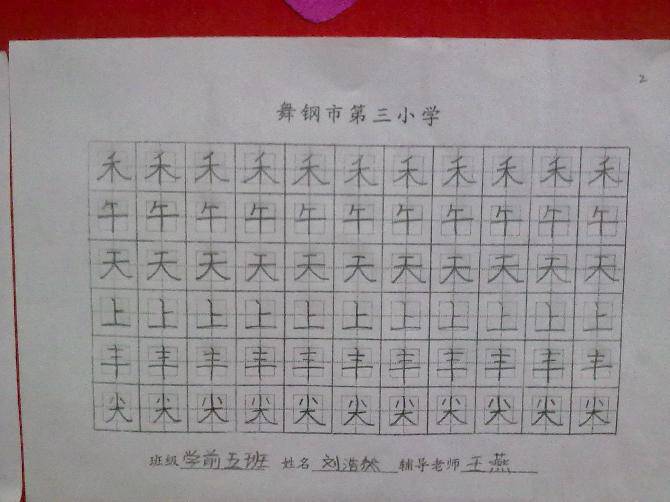 2
舞钢市第三小学
禾禾禾禾禾禾禾禾禾禾禾
午午午午午午午午午午午
天天天天天天天天天天天
上上上上上上上上上上上
丰丰丰丰丰丰丰丰丰丰丰
尖尖尖尖尖尖尖尖尖尖尖
班级 学前五班 姓名 刘浩然 辅导老师 王燕